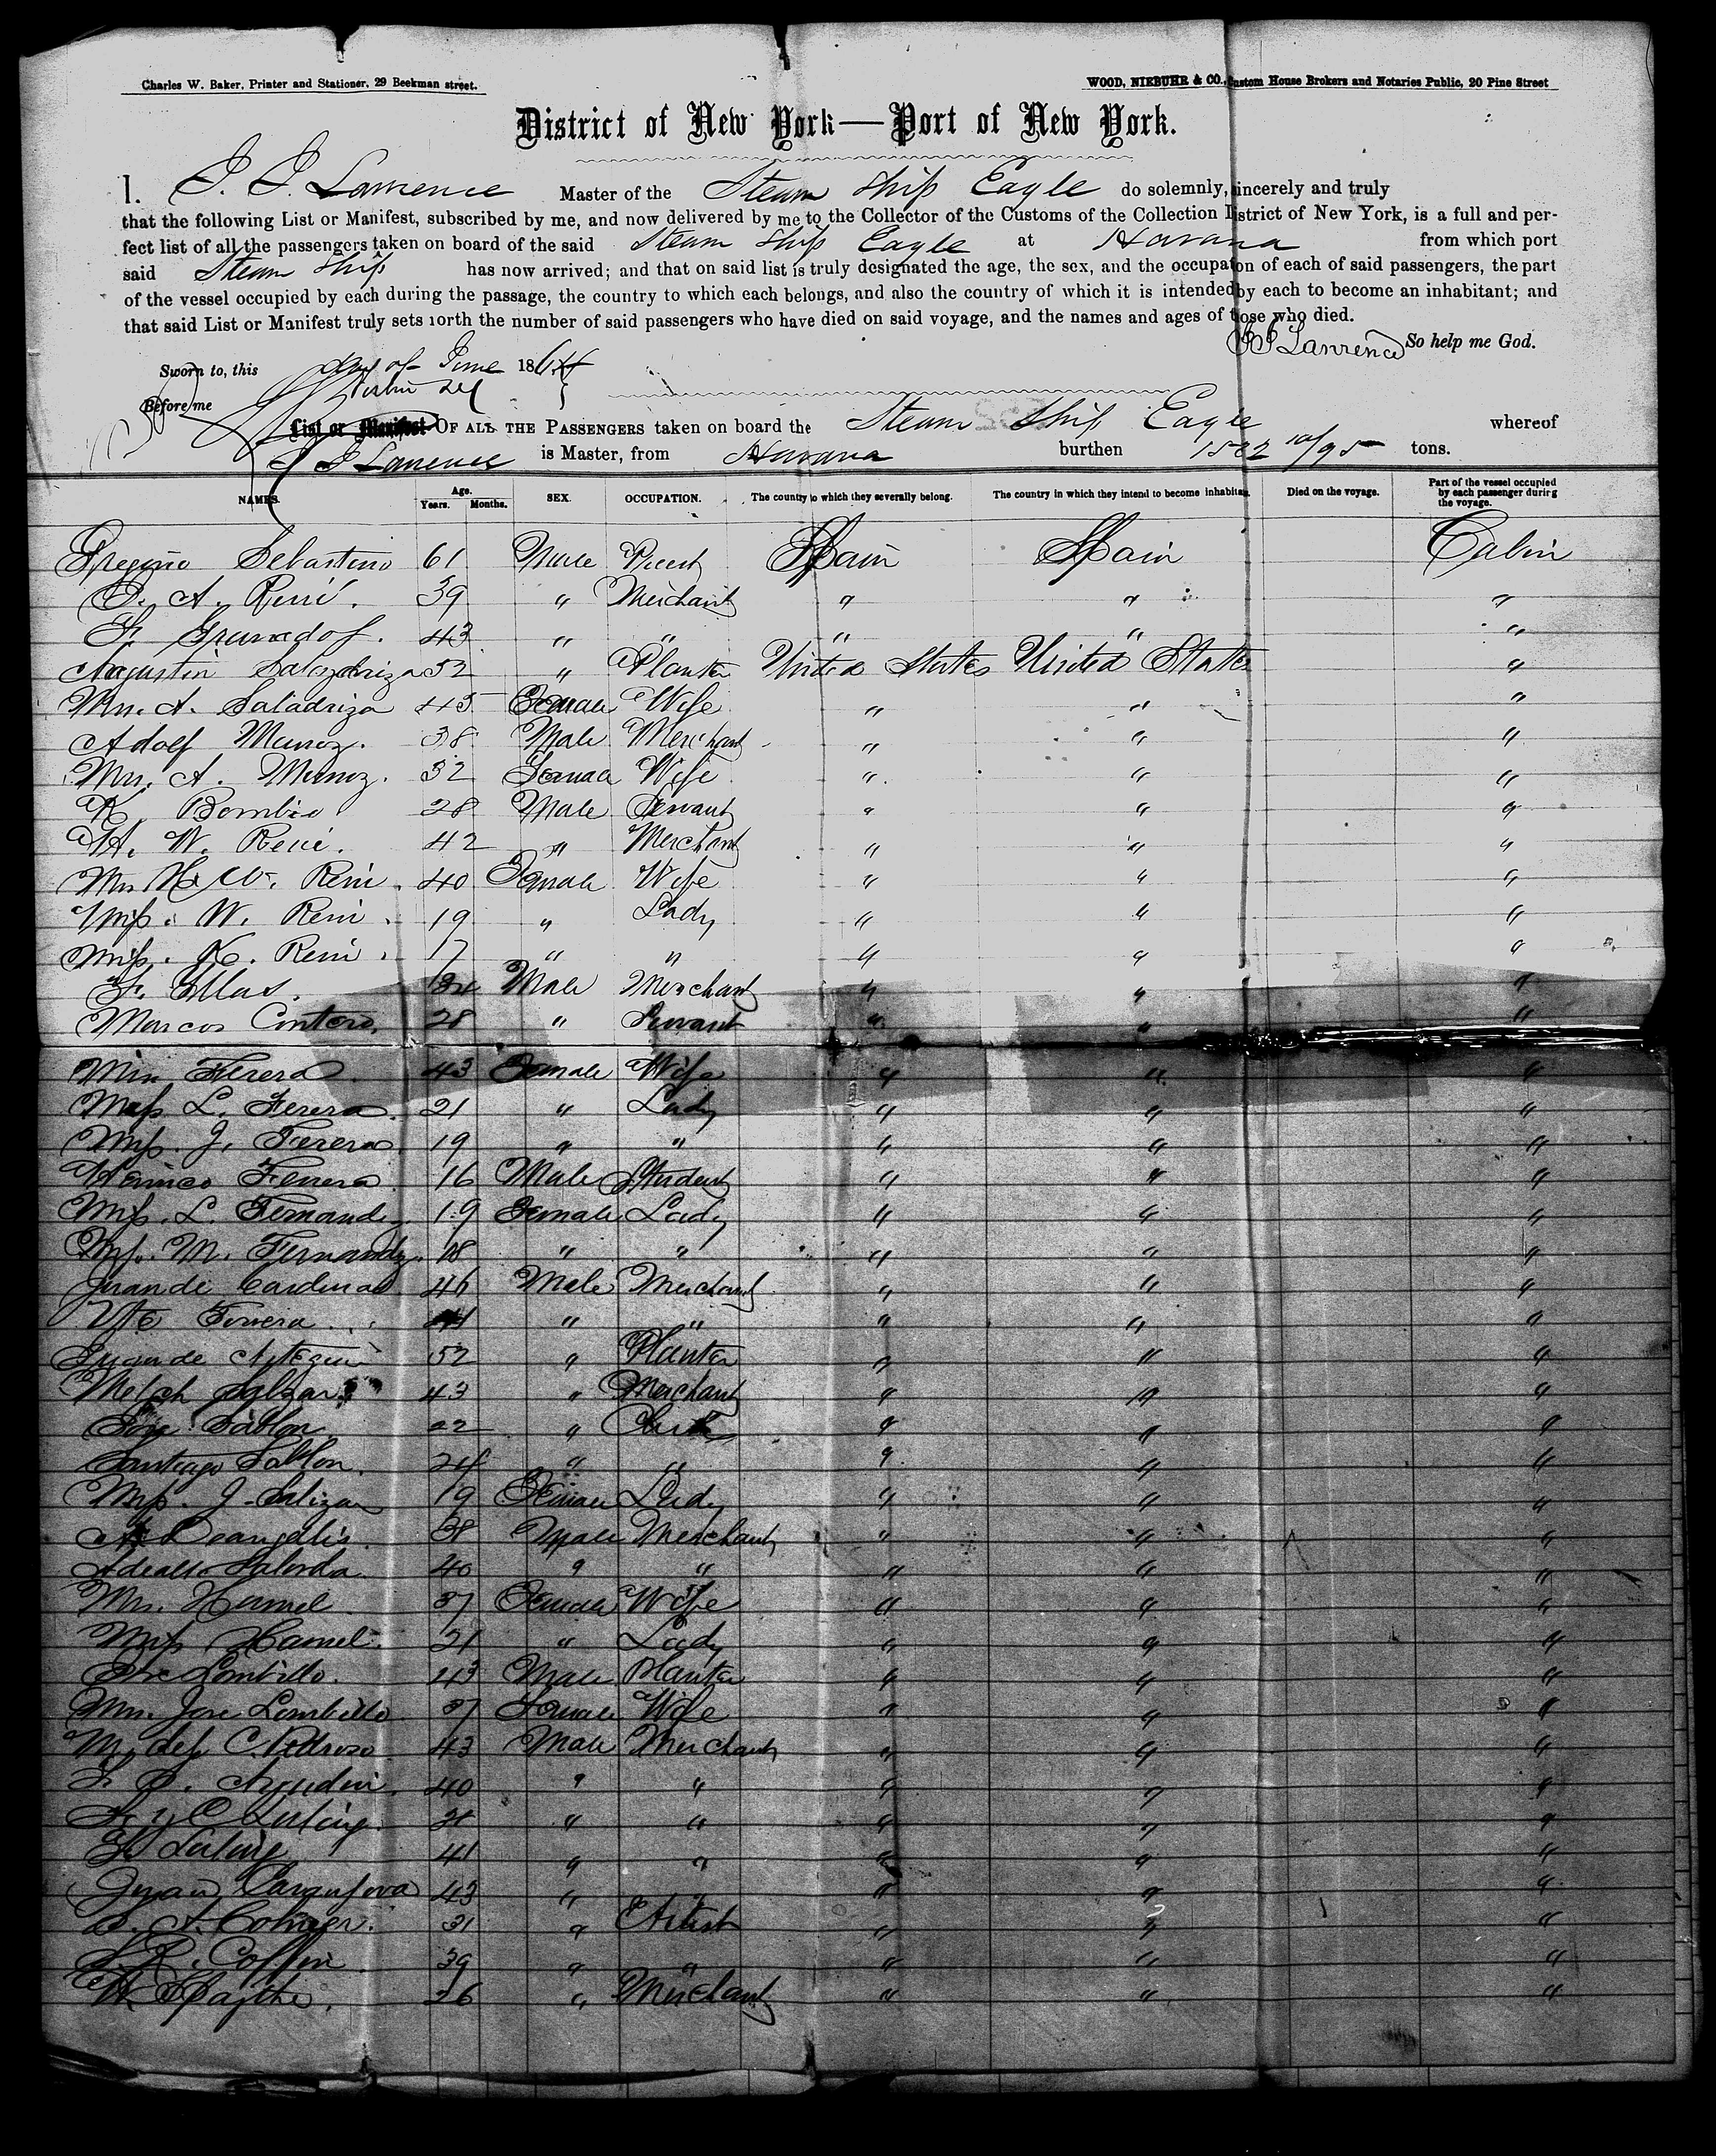 Charles W. Baker, Printer and Stationer, 29 Beekman street.
WOOD, NIEBUHR & CO., Custom House Brokers and Notaries Public, 20 Pine Street
District of New York—Port of New York.
I. J. J. Lawrence Master of the Steam Ship Eagle do solemnly, sincerely and truly
that the following List or Manifest, subscribed by me, and now delivered by me to the Collector of the Customs of the Collection District of New York, is a full and per-
fect list of all the passengers taken on board of the said Steam Ship Eagle at Havana from which port
said Steam Ship has now arrived; and that on said list is truly designated the age, the sex, and the occupaton of each of said passengers, the part
of the vessel occupied by each during the passage, the country to which each belongs, and also the country of which it is intended by each to become an inhabitant; and
that said List or Manifest truly sets forth the number of said passengers who have died on said voyage, and the names and ages of those who died.
J J Lawrence So help me God.
Sworn to, this day of June 186
Before me
List or Manifest OF ALL THE PASSENGERS taken on board the Steam Ship Eagle whereof
J J Lawrence is Master, from Havana burthen 1522 10/95 tons.
NAMES. Age. Years. Months. SEX. OCCUPATION. The country to which they severally belong. The country in which they intend to become inhabitan Died on the voyage. Part of the vessel occupied by each passenger during the voyage.
Sebastino 61 Male Priest Spain Spain Cabin
A. René. 39 " Merchant " " "
F. 43 " " " " "
Augustin 52 " Planter United States United States "
Mrs. A. Saladriza 45 Female Wife " " "
Adolf Munoz. 38 Male Merchant " " "
Mrs. A. Munoz. 32 Female Wife " " "
Bombio 28 Male Servant " " "
H. W. René. 42 " Merchant " " "
Mrs H. W. Reni. 40 Female Wife " " "
Miss. W. Reni. 19 " Lady " " "
Miss. K. Reni. 17 " " " " "
F. Male Merchant " " "
Marcos Contero. 28 " Servant " " "
Mrs Ferera. 43 Female Wife " " "
Miss L. Ferera. 21 " Lady " " "
Miss. J. Ferera. 19 " " " " "
Ferrera 16 Male Student " " "
Miss. L. Fernandez. 19 Female Lady " " "
Miss. M. Fernandez. 18 " " " " "
Juan de Cardenas 46 Male Merchant " " "
" " " " "
Juan de 52 " Planter " " "
Salzar 43 " Merchant " " "
Jose Sablon 22 " Clerk " " "
Santiago Sablon. 24 " " " " "
Miss. J. Salizar 19 Female Lady " " "
A Deangelis. 38 Male Merchant " " "
40 " " " " "
Mrs. Hamel 37 Female Wife " " "
Miss Hamel. 21 " Lady " " "
Jose Lombillo. 43 Male Planter " " "
Mrs. Jose Lombillo 37 Female Wife " " "
M. del C. Pedroso 43 Male Merchant " " "
40 " " " " "
" " " " "
F. Luling 41 " " " " "
Juan 43 " " " " "
31 " Artist " " "
Coffin. 39 " " " " "
26 " Merchant " " "